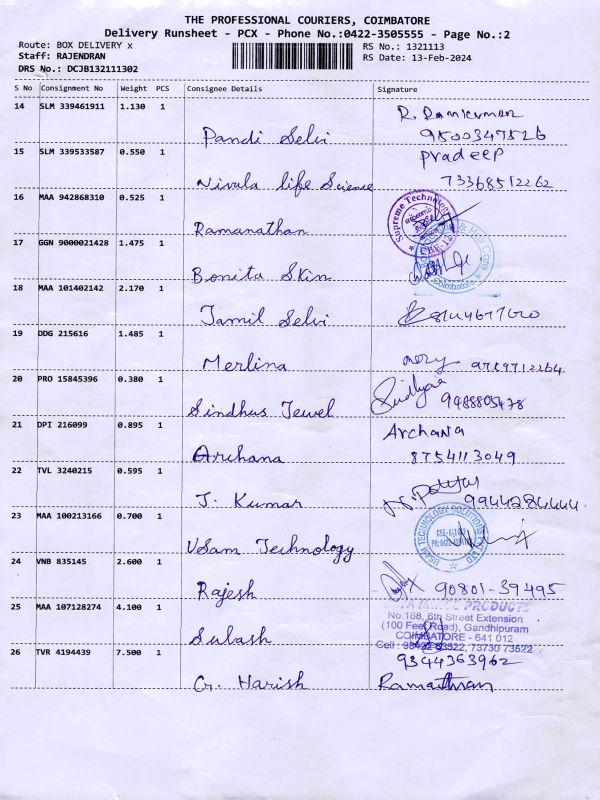 THE PROFESSIONAL COURIERS, COIMBATORE
Delivery Runsheet - PCX - Phone No.:0422-3505555 - Page No.:2
Route: BOX DELIVERY x
Staff: RAJENDRAN
DRS No.: DCJB132111302
RS No.: 1321113
RS Date: 13-Feb-2024
S No Consignment No Weight PCS Consignee Details Signature
14 SLM 339461911 1.130 1 Pandi Selvi 9500347526
15 SLM 339533587 0.550 1 Nivula life Science Pradeep 73368512262
16 MAA 942868310 0.525 1 Ramanathan Supreme Technology
17 GGN 9000021428 1.475 1 Bonita Skin Coimbatore
18 MAA 101402142 2.170 1 Tamil Selvi
19 DDG 215616 1.485 1 Merlina
20 PRO 15845396 0.380 1 Sindhus Jewel
21 DPI 216099 0.895 1 Archana Archana 8754113049
22 TVL 3240215 0.595 1 J. Kumar
23 MAA 100213166 0.700 1 USam Technology USAM TECHNOLOGY SOLUTIONS PVT LTD
24 VNB 835145 2.600 1 Rajesh 90801-39495
25 MAA 107128274 4.100 1 Subash PRODUCTS
No.168, 6th Street Extension
(100 Feet Road), Gandhipuram
COIMBATORE - 641 012
73730 73522
26 TVR 4194439 7.500 1 G. Harish 9344363962